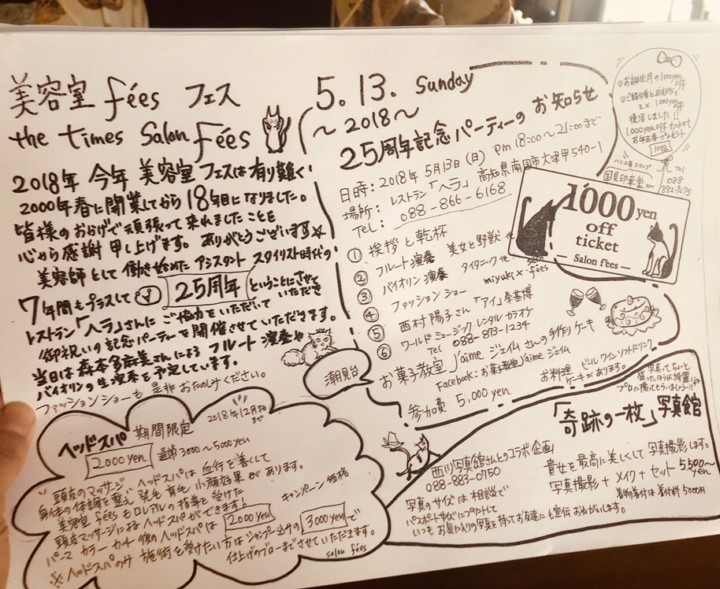 美容室 fées フェス
the times Salon Fées
2018年 今年 美容室フェスは有り難く
2000年春に開業してから 18年目になりました。
皆様のおかげで頑張って来れましたことを
心から感謝申し上げます。ありがとうございます☆
美容師として働き始めた アシスタント スタイリスト時代の
7年間もプラスして 25周年 ということにさせていただき
レストラン「ヘラ」さんに ご協力をいただいて
御祝いの記念パーティーを開催させていただきます。
当日は 森本多麻美さんによる フルート演奏や
バイオリンの生演奏も予定しています。
ファッションショーも 是非 おたのしみください。
5.13. Sunday
～2018～
25周年記念パーティーのお知らせ
日時: 2018年 5月13日(日) pm 18:00～21:00まで
場所: レストラン「ヘラ」 高知県南国市大埇甲540-1
Tel: 088-866-6168
① 挨拶と乾杯
② フルート演奏 美女と野獣 他
③ バイオリン演奏 タイタニック 他
④ ファッションショー miyuki × fées
⑤ 西村陽子さん 「アイ」奏
⑥ ワールドミュージック レンタルカラオケ
Tel 088-873-1234
お菓子教室 J'aime ジェイムさんの手作りケーキ
Facebook: お菓子教室 J'aime ジェイム
参加費 5,000 yen
お料理 ビール ワイン ソフトドリンク
ケーキがあります。
潮見台
お誕生月の1000yen
1000yen off ticket
088
1000 yen
off
ticket
Salon fées
ヘッドスパ 期間限定 2018年12月末まで
2000 yen 通常 3000～5000yen
頭皮のマッサージ、ヘッドスパは血行を良くして
身体の体調を整え 発毛 育毛 小顔効果があります。
美容室 fées もロレアルの指導を受けた
頭皮マッサージによるヘッドスパができます! キャンペーン価格
パーマ カラー カット 他のヘッドスパは 2000yen
※ ヘッドスパのみ 施術を受けたい方は シャンプー込みの 3000yen で
仕上げのブローまでさせていただきます。
salon fées
「奇跡の一枚」写真館
西川写真館さんとのコラボ企画!
088-883-0750
貴女を最高に美しくして 写真撮影します。
写真撮影 + メイク + セット 5500yen～
着物着付は 着付料 5000円
写真のサイズは相談で
パスポートサイズにプリントして